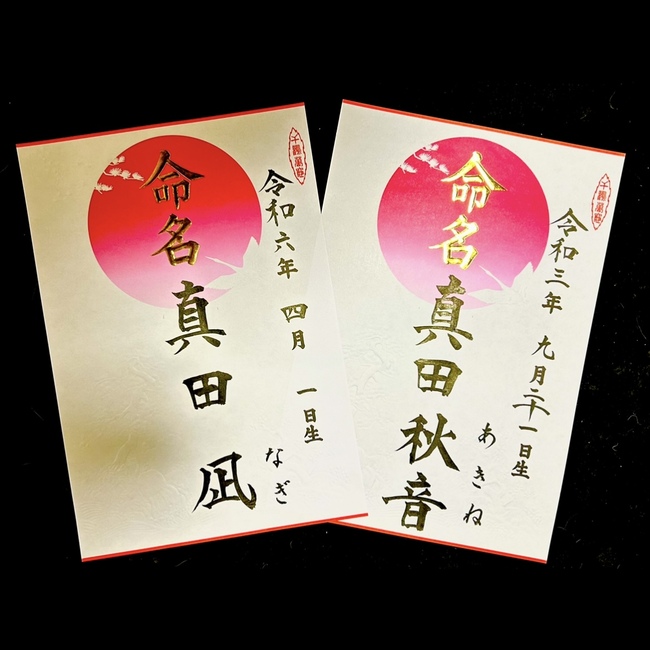 令和六年 四月 一日生
命名 真田 凪
なぎ
令和三年 九月二十一日生
命名 真田 秋音
あきね